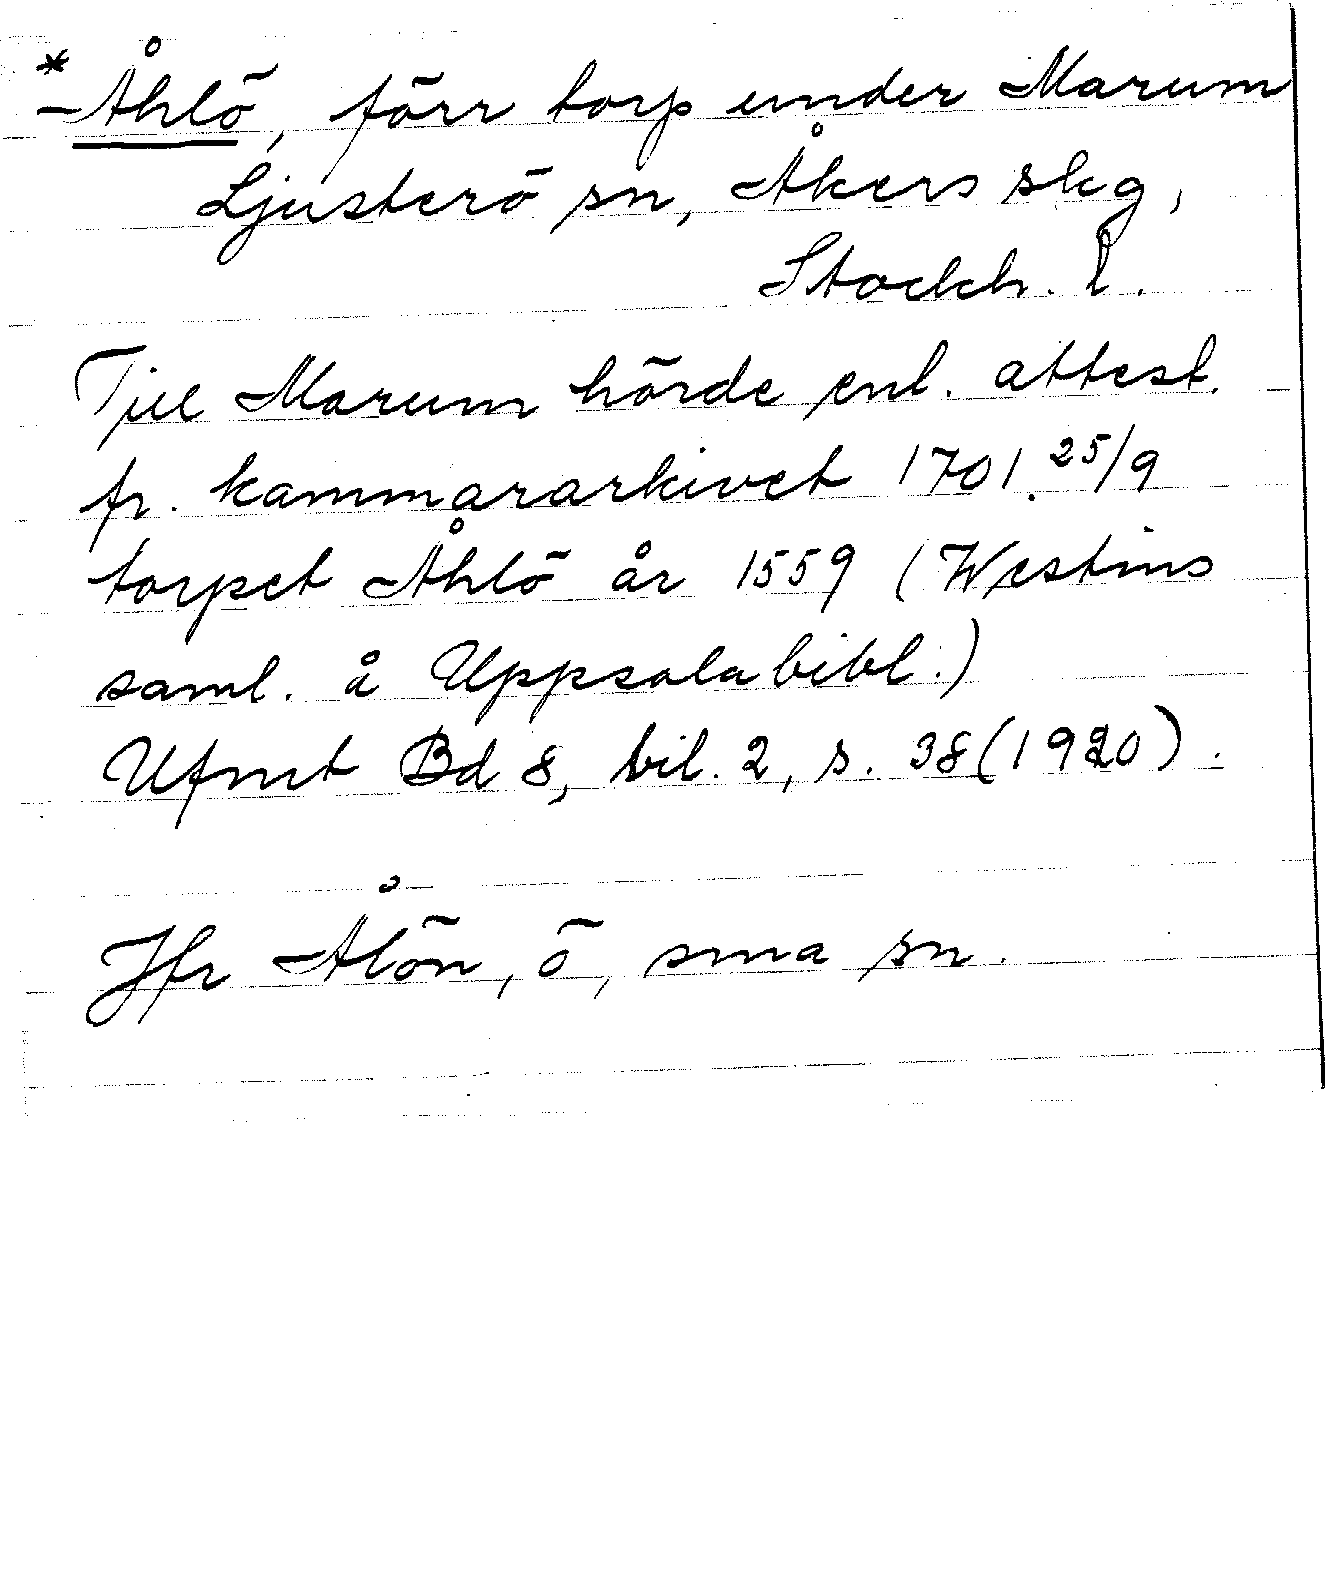 *Åhlö, förr torp under Marum
Ljusterö sn, Åkers skg,
Stockh. l.
Till Marum hörde enl. attest.
fr. kammararkivet 1701.25/9
torpet Åhlö år 1559 (Westins
saml. å Uppsala bibl.)
Ufmt Bd 8, bil. 2, s. 38 (1920).
Jfr Ålön, ö, sma sn.